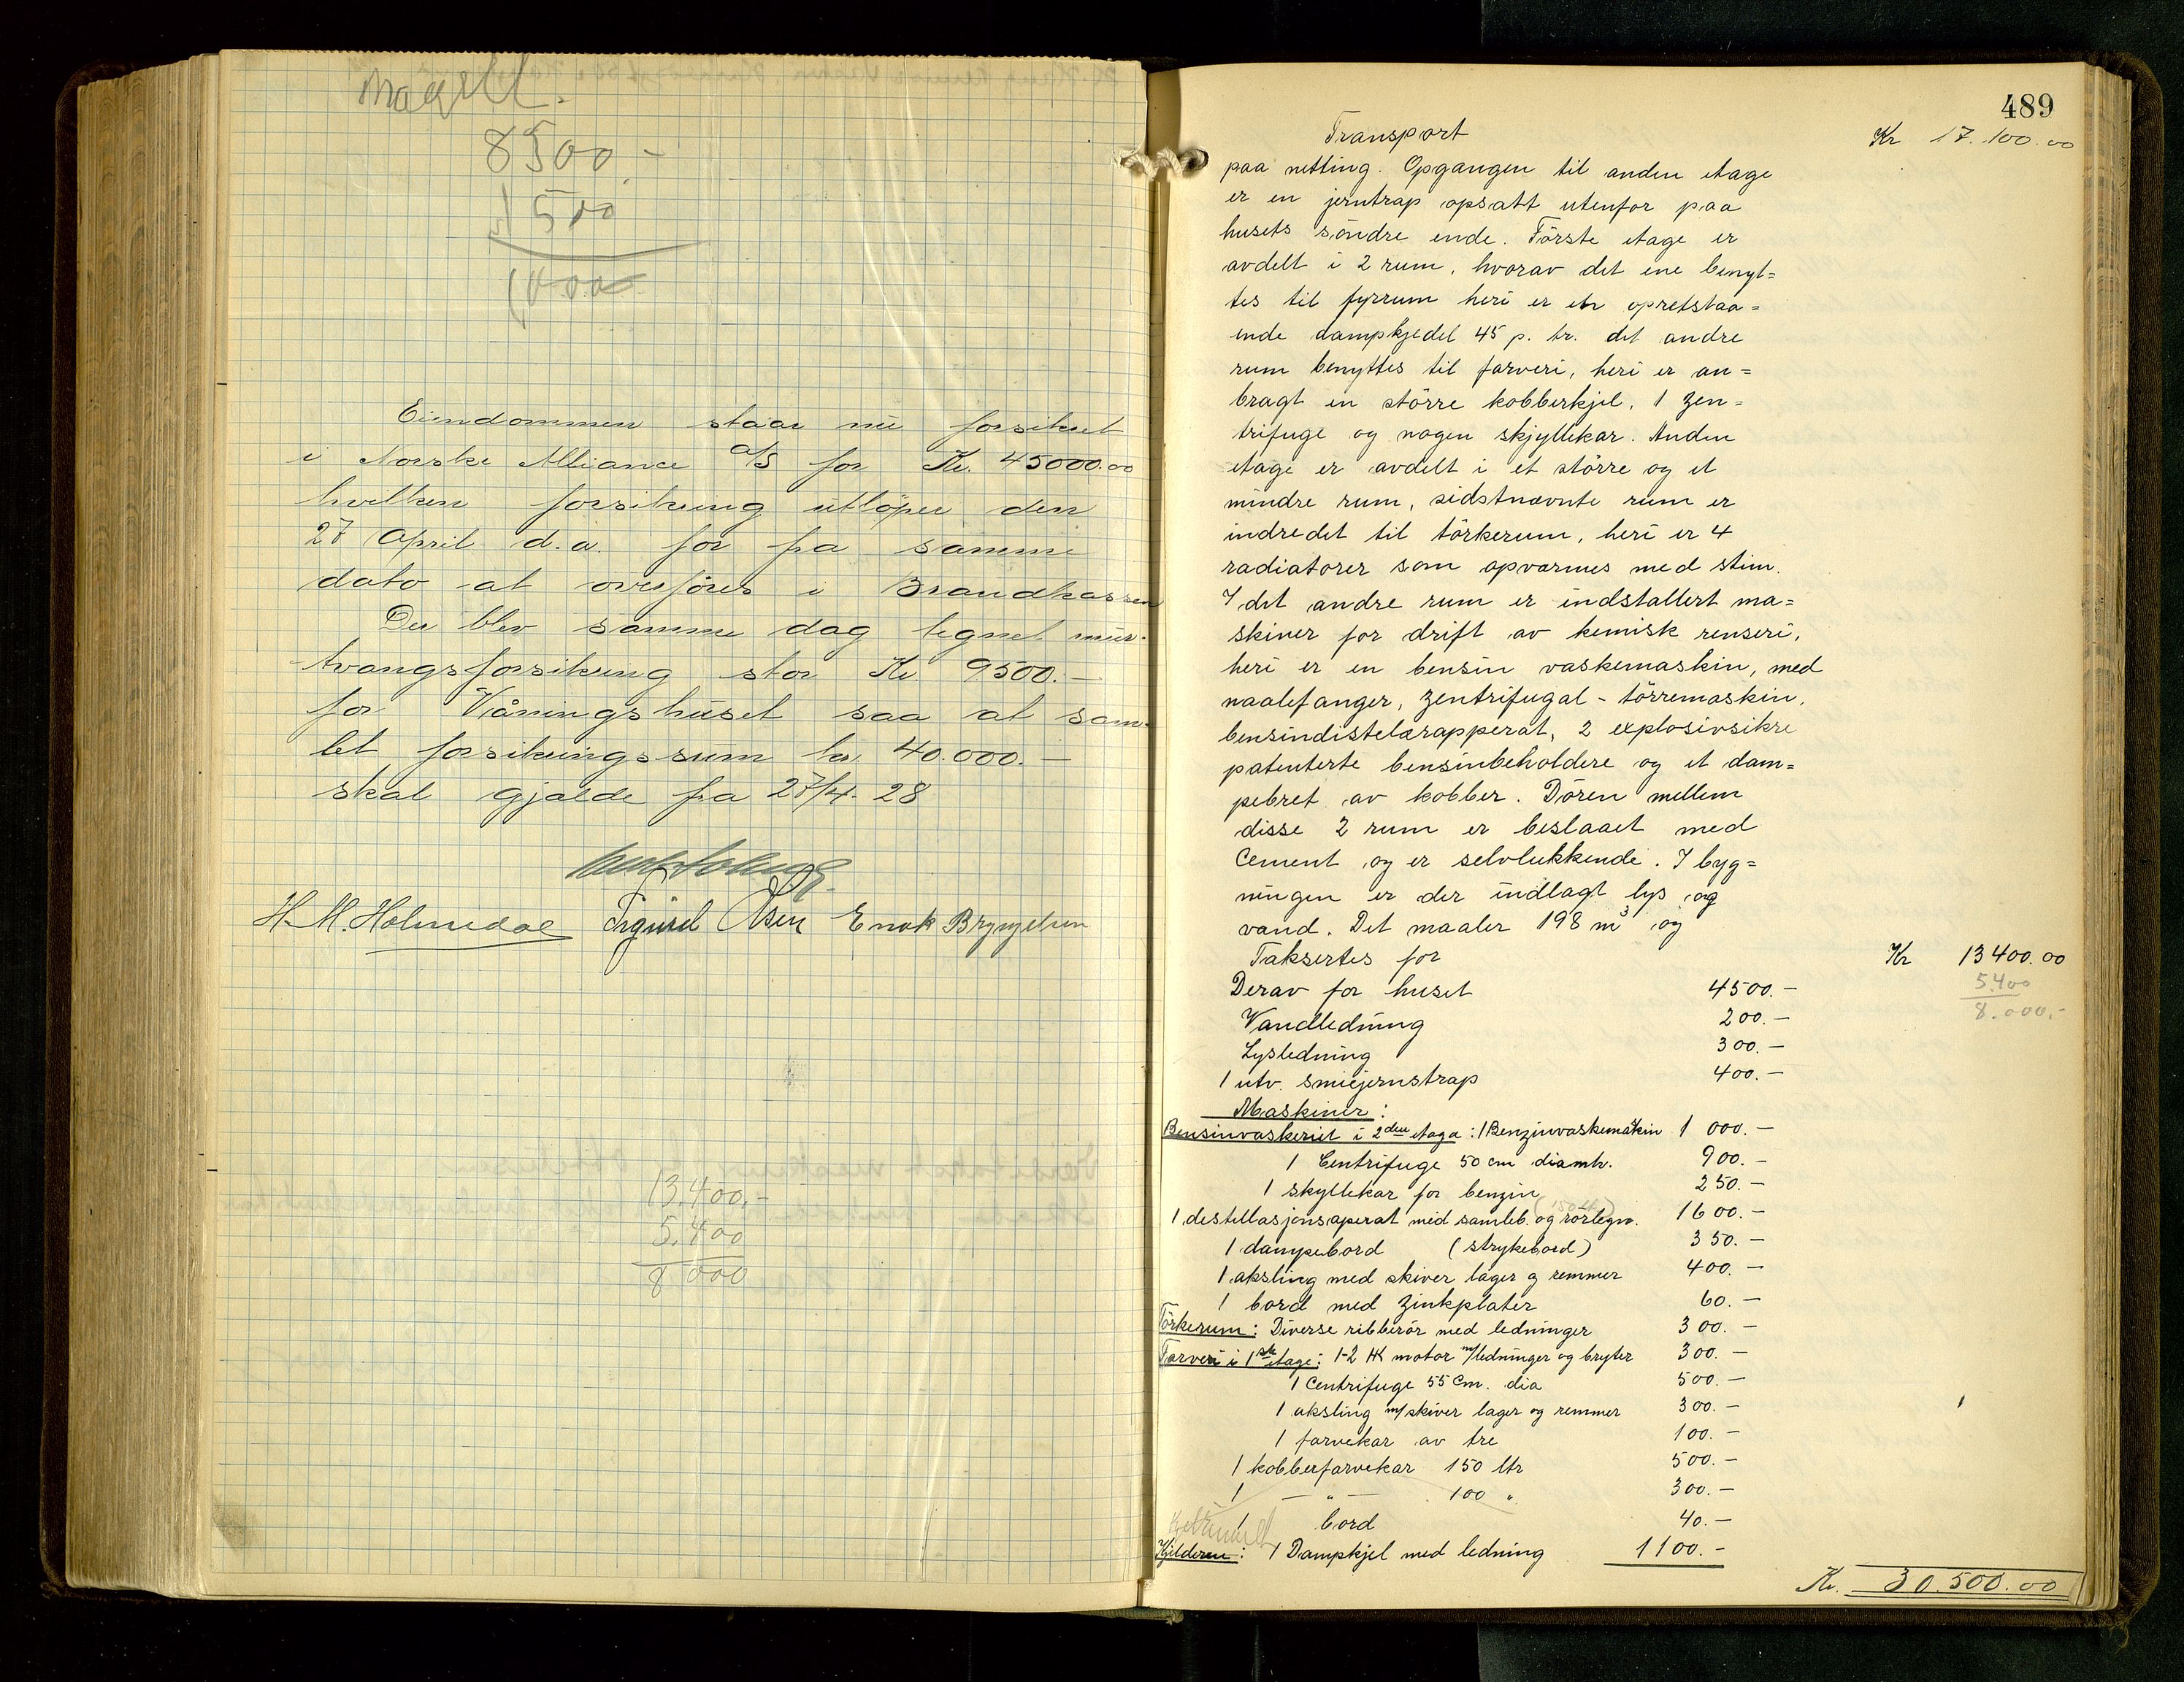 8500.-
1500
Eiendommen staar nu forsikret
i Norske Alliance a/s for Kr. 45000.00
hvilken forsikring utløper den
27 April d.a. for fra samme
dato at overføres i Brandkassen
Der blev samme dag tegnet mur-
tvangsforsikring stor Kr 9500.-
for Våningshuset saa at sam-
let forsikringssum kr. 40.000.-
skal gjælde fra 27/4-28
H. M. Holmedal Sigurd Åsen Enok Brynjelsen
13.400,-
5.400
8 000
489
Transport Kr 17.100.00
paa netting. Opgangen til anden etage
er en jerntrap opsatt utenfor paa
husets søndre ende. Første etage er
avdelt i 2 rum, hvorav det ene benyt=
tes til fyrrum heri er en opretstaa=
ende dampkjedel 45 p. tr. det andre
rum benyttes til farveri, heri er an=
bragt en større kobberkjel, 1 zen=
trifuge og nogen skjyllekar. Anden
etage er avdelt i et større og et
mindre rum, sidstnævnte rum er
indredet til tørkerum, heri er 4
radiatorer som opvarmes med stim.
I det andre rum er indstallert ma=
skiner for drift av kemisk renseri,
heri er en bensin vaskemaskin, med
naalefanger, zentrifugal-tørremaskin,
bensindistelærapperat, 2 explosivsikre
patenterte bensinbeholdere og et dam=
pebret av kobber. Døren mellem
disse 2 rum er beslaaet med
Cement og er selvlukkende. I byg=
ningen er der indlagt lys og
vand. Det maaler 198 m³ og
Taksertes for Kr 13400.00
5.400
8.000.-
Derav for huset 4500.-
Vandledning 200.-
Lysledning 300.-
1 utv. smiejernstrap 400.-
Maskiner:
Bensinvaskeriet i 2den etage: 1 Benzinvaskemaskin 1 000.-
1 Centrifuge 50 cm diamtr. 900.-
1 skyllekar for benzin 250.-
1 destillasjonsaperat med samleb. og rørlegn. 1600.-
1 dampebord (strykebord) 350.-
1 aksling med skiver lager og remmer 400.-
1 bord med zinkplater 60.-
Tørkerum: Diverse ribberør med ledninger 300.-
Farveri i 1ste etage: 1-2 HK motor m/ledninger og bryter 300.-
1 Centrifuge 55 Cm. dia 500.-
1 aksling m/skiver lager og remmer 300.-
1 farvekar av tre 100.-
1 kobberfarvekar 150 ltr 500.-
1 -"- 100 " 300.-
1 bord 40.-
Kjelderen: 1 Dampkjel med ledning 1100.-
Kr. 30.500.00